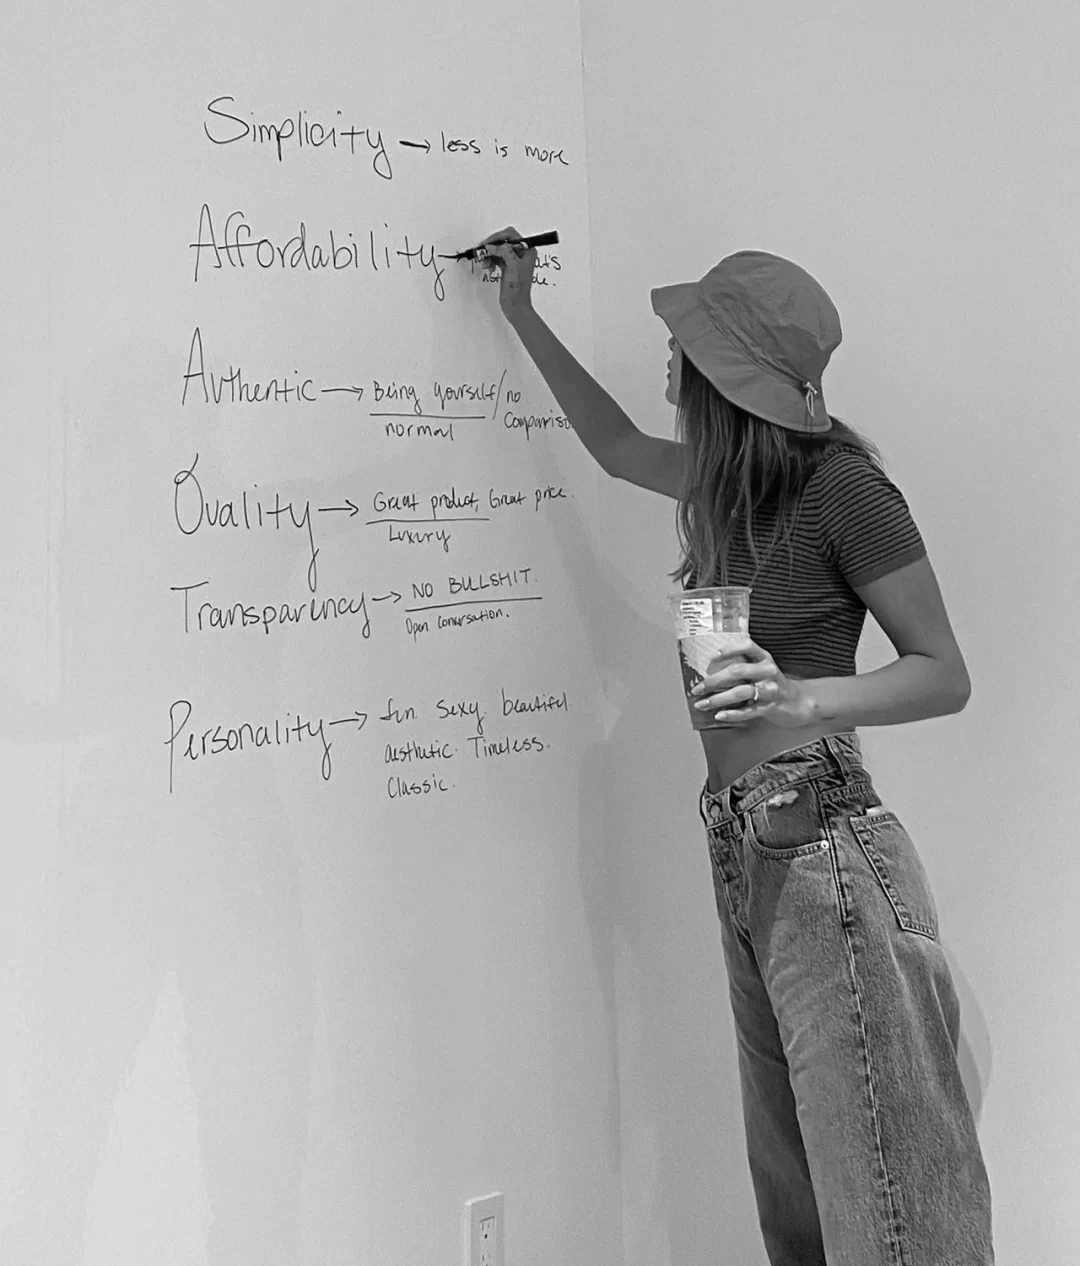 Simplicity → less is more
Affordability
Authentic → Being yourself/no
normal comparison
Quality → Great product, Great price.
Luxury
Transparency → NO BULLSHIT.
Open conversation.
Personality → fun. sexy. beautiful.
aesthetic. Timeless.
Classic.